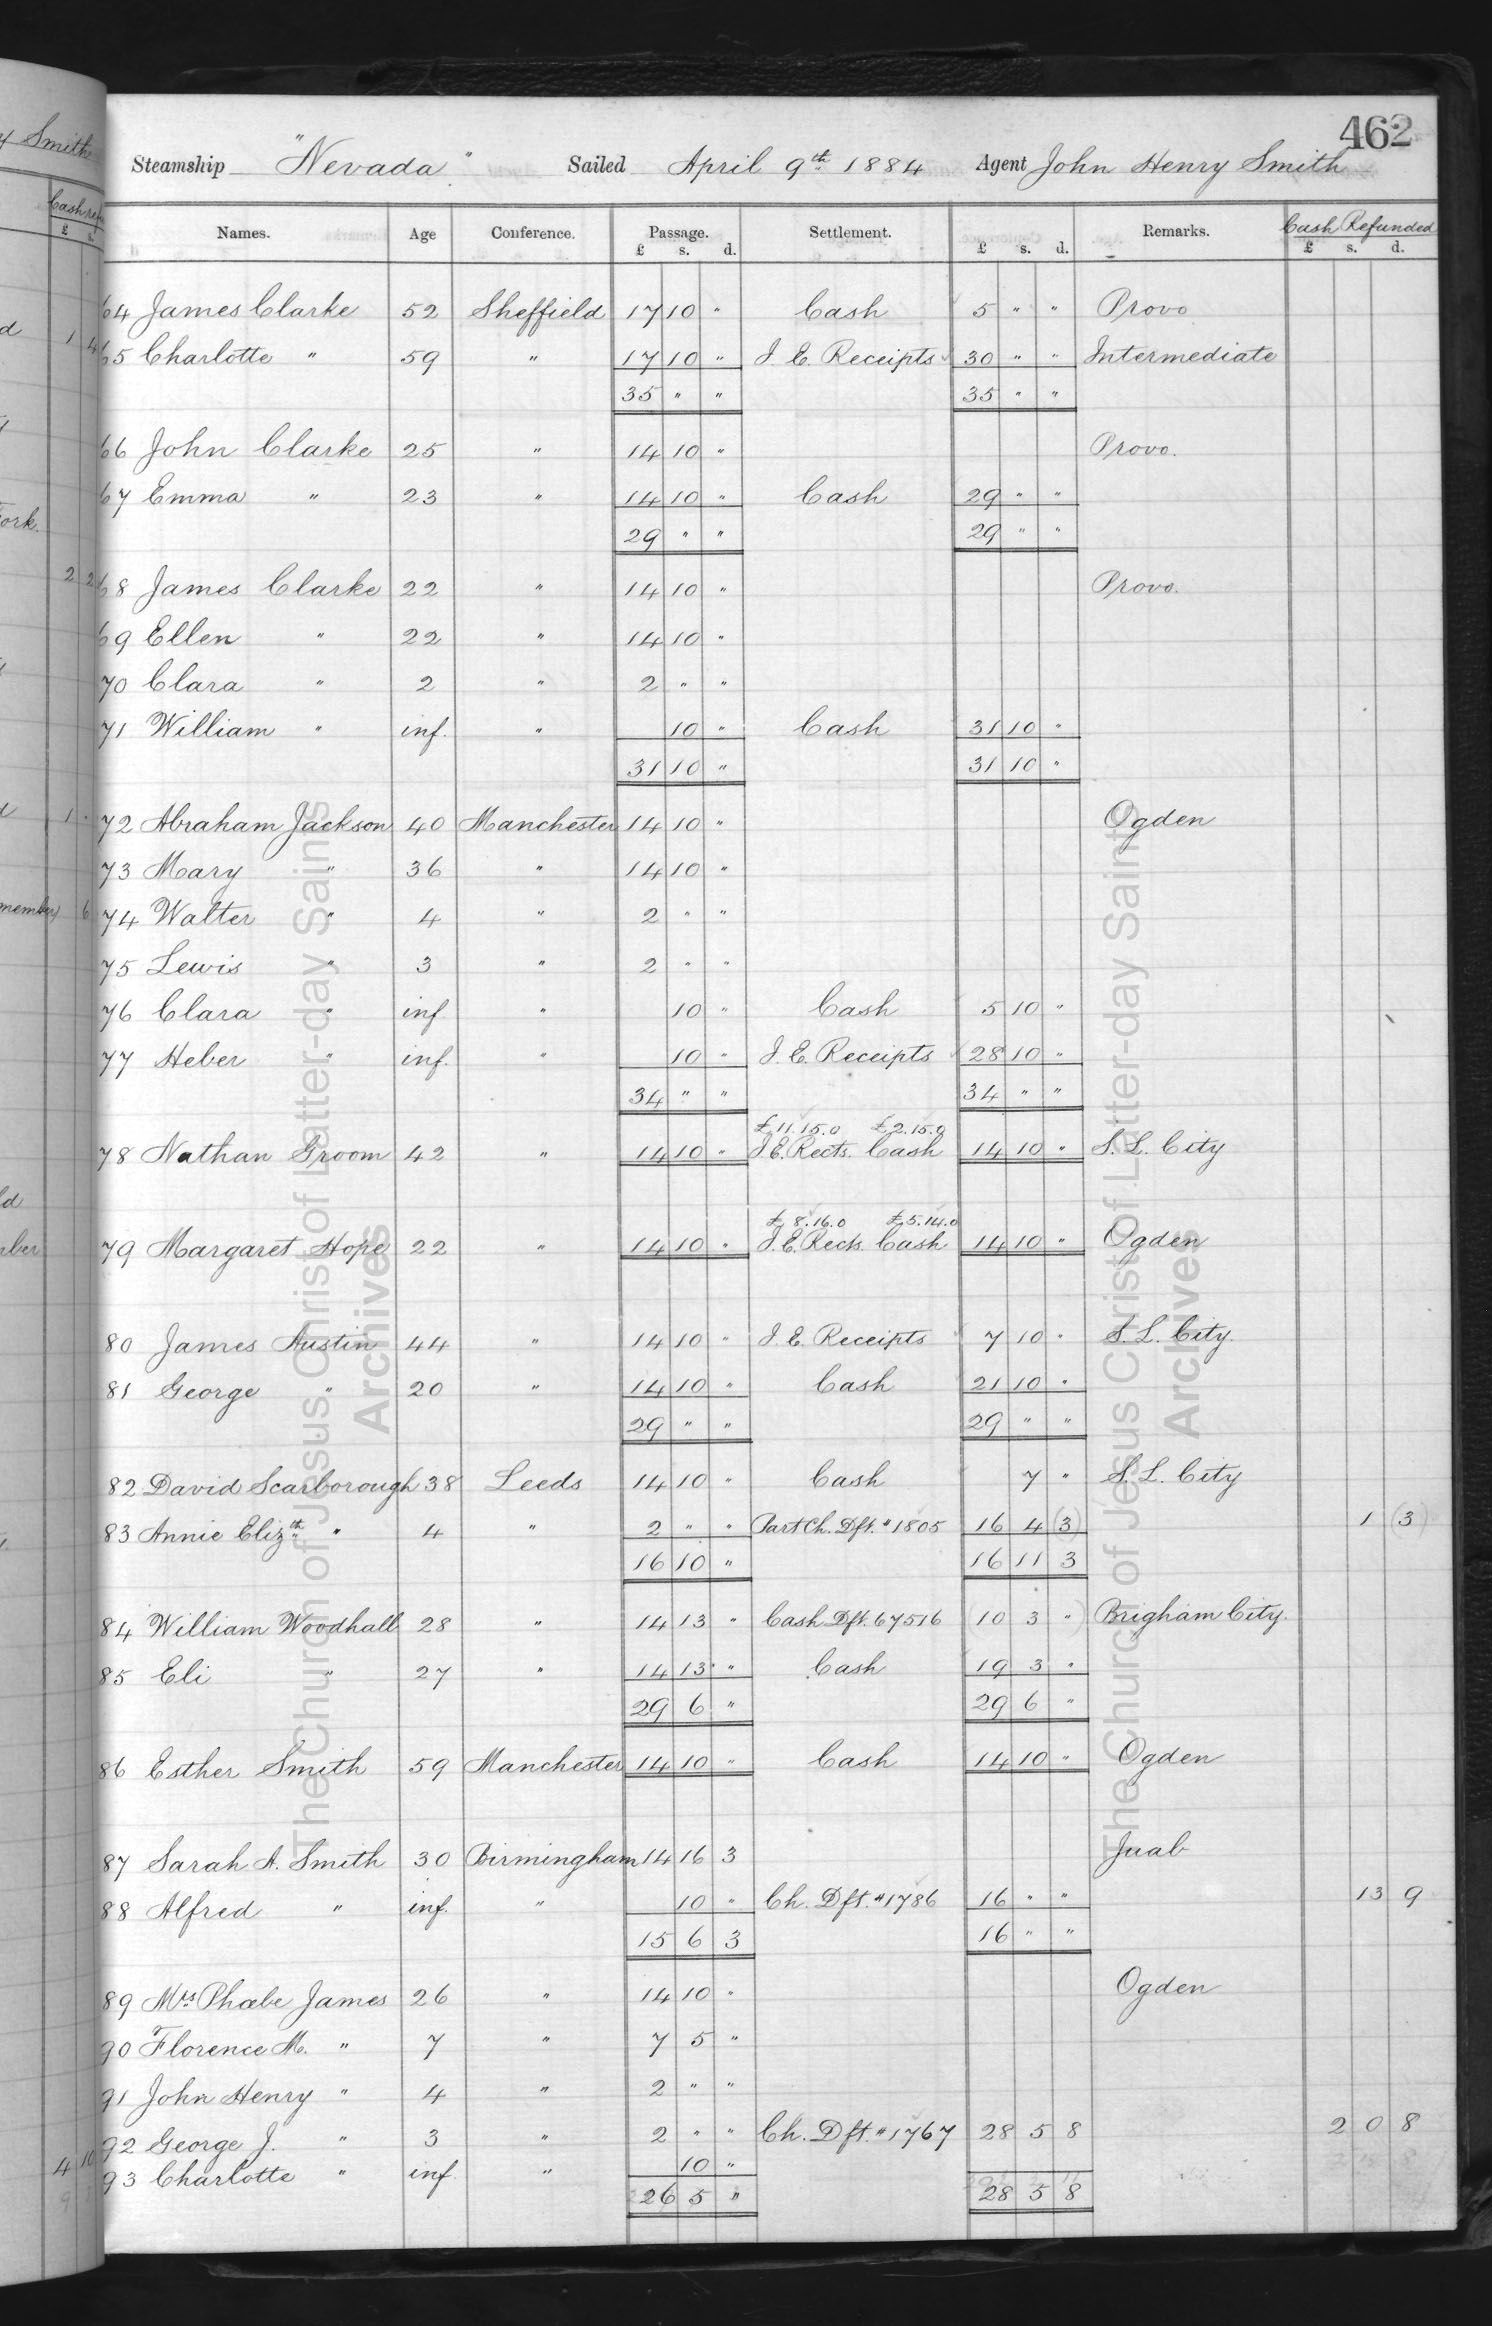 462
Steamship "Nevada" Sailed April 9th 1884 Agent John Henry Smith
Names. Age Conference. Passage. Settlement. Remarks. Cash Refunded
£ s. d. £ s. d. £ s. d.
64 James Clarke 52 Sheffield 17 10 " Cash 5 " " Provo
65 Charlotte " 59 " 17 10 " I. E. Receipts 30 " " Intermediate
35 " " 35 " "
66 John Clarke 25 " 14 10 " Provo.
67 Emma " 23 " 14 10 " Cash 29 " "
29 " " 29 " "
68 James Clarke 22 " 14 10 " Provo.
69 Ellen " 22 " 14 10 "
70 Clara " 2 " 2 " "
71 William " inf. " 10 " Cash 31 10 "
31 10 " 31 10 "
72 Abraham Jackson 40 Manchester 14 10 " Ogden
73 Mary " 36 " 14 10 "
74 Walter " 4 " 2 " "
75 Lewis " 3 " 2 " "
76 Clara " inf " 10 " Cash 5 10 "
77 Heber " inf. " 10 " I. E. Receipts 28 10 "
34 " " 34 " "
£11.15.0 £2.15.0
78 Nathan Groom 42 " 14 10 " I E. Rects. Cash 14 10 " S. L. City
£8.16.0 £5.14.0
79 Margaret Hope 22 " 14 10 " I. E. Rects. Cash 14 10 " Ogden
80 James Austin 44 " 14 10 " I. E. Receipts 7 10 " S. L. City.
81 George " 20 " 14 10 " Cash 21 10 "
29 " " 29 " "
82 David Scarborough 38 Leeds 14 10 " Cash 7 " S. L. City
83 Annie Elizth " 4 " 2 " " Part Ch. Dft. # 1805 16 4 (3) 1 (3)
16 10 " 16 11 3
84 William Woodhall 28 " 14 13 " Cash Dft. 67516 (10 3 ") Brigham City.
85 Eli " 27 " 14 13 " Cash 19 3 "
29 6 " 29 6 "
86 Esther Smith 59 Manchester 14 10 " Cash 14 10 " Ogden
87 Sarah A. Smith 30 Birmingham 14 16 3 Juab
88 Alfred " inf. " 10 " Ch. Dft. # 1786 16 " " 13 9
15 6 3 16 " "
89 Mrs Phœbe James 26 " 14 10 " Ogden
90 Florence M. " 7 " 7 5 "
91 John Henry " 4 " 2 " "
92 George J. " 3 " 2 " " Ch. Dft. # 1767 28 5 8 2 0 8
93 Charlotte " inf " 10 "
26 5 " 28 5 8
The Church of Jesus Christ of Latter-day Saints
Archives
The Church of Jesus Christ of Latter-day Saints
Archives